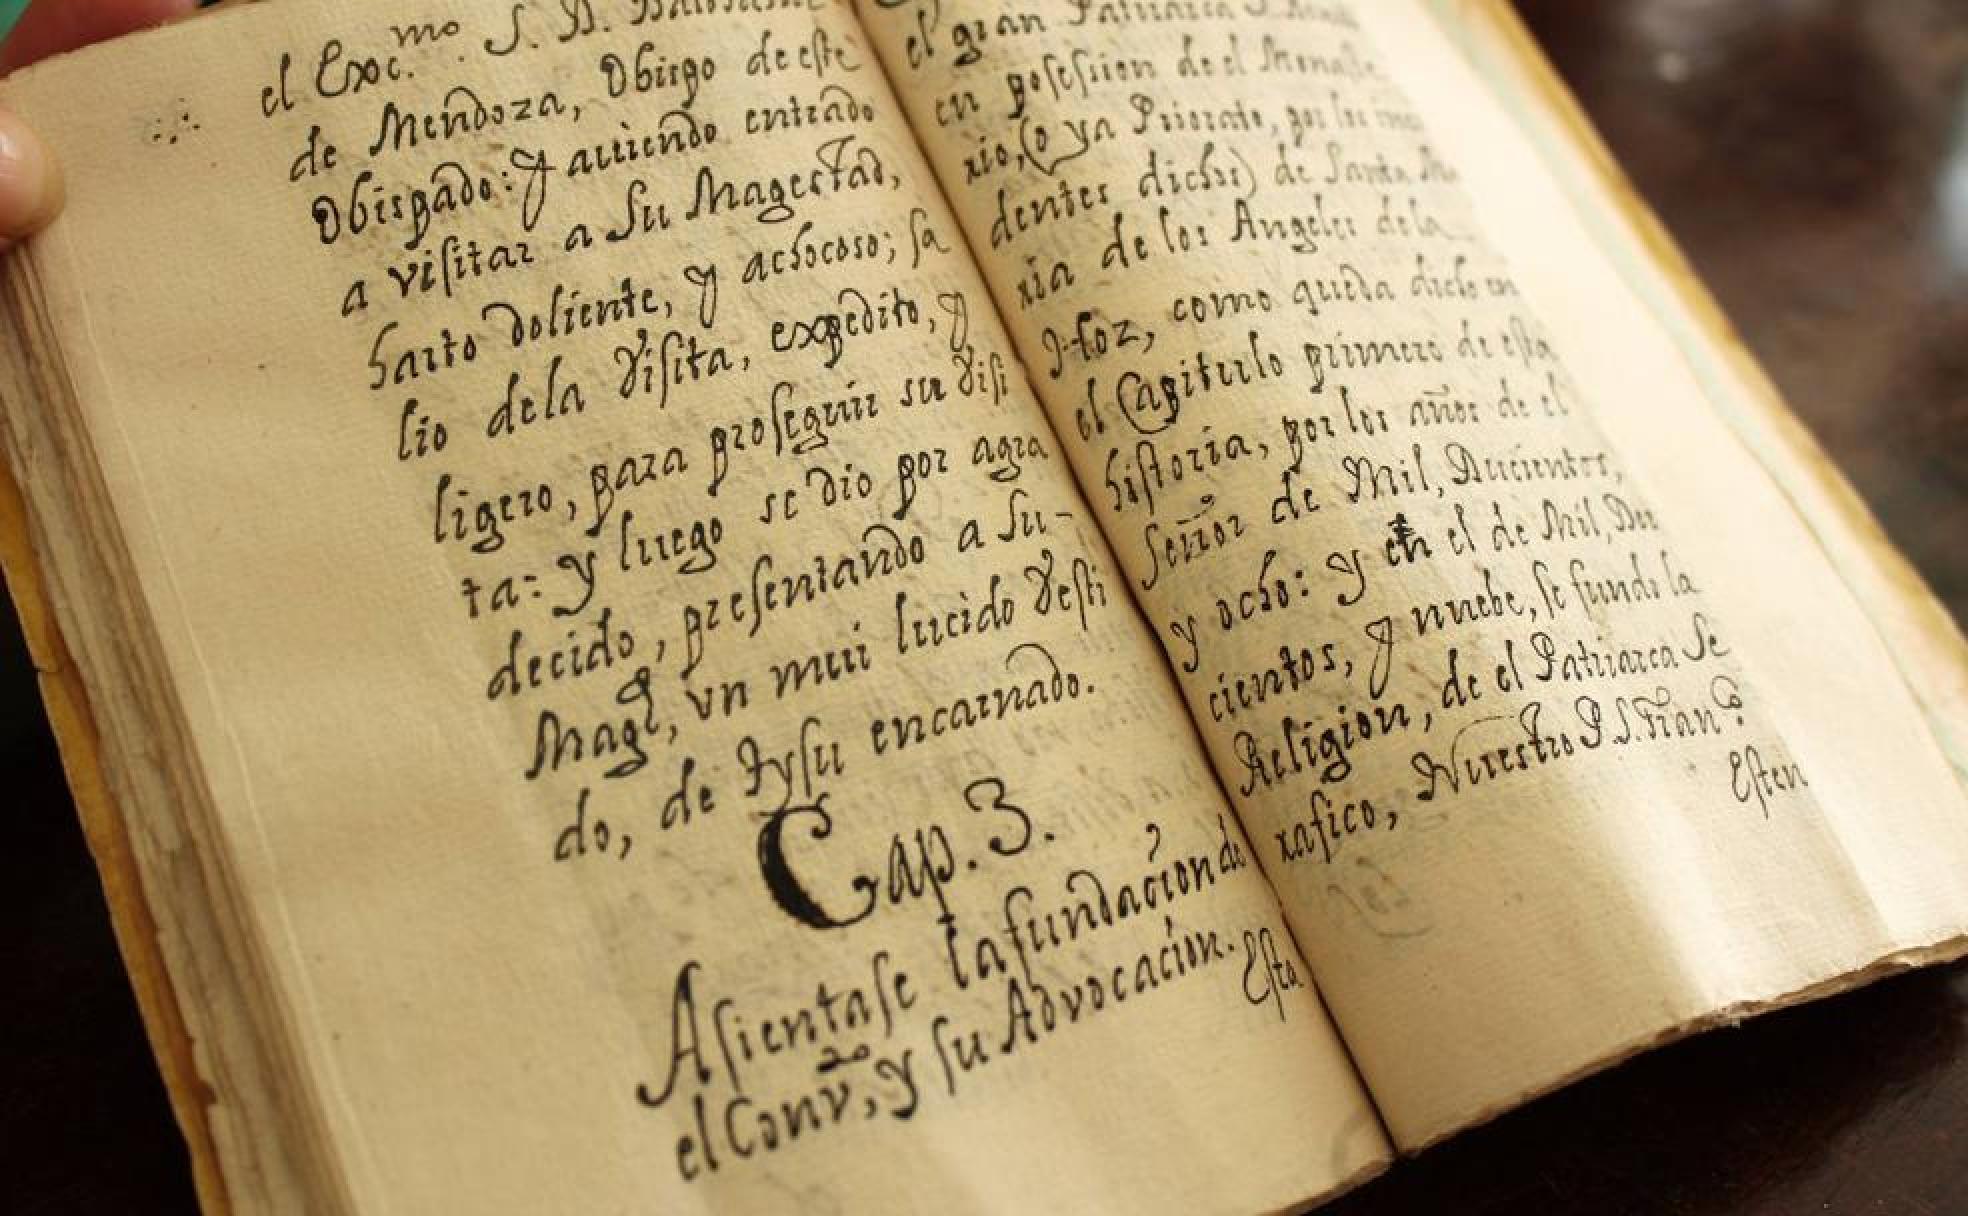 el Exc.mo S. D.
de Mendoza, Obispo de este
Obispado: y auiendo entrado
a visitar a Su Magestad,
harto doliente, y achocoso; sa
lio dela Visita, expedito, y
ligero, para proseguir su Visi
ta: y luego se dio por agra
decido, presentando a Su-
Magd, vn mui lucido Vesti
do, de Tysu encarnado.
Cap. 3.
Asientase la fundacion de
el Convto, y su Advocacion.
Esta
el gran Patriarca
en posession de el Monaste
rio, (o ya Priorato, por los
dentes dichos) de Santa Ma
ria de los Angeles de la
Hoz, como queda dicho en
el Capitulo primero de esta
historia, por los años de el
Señor de Mil, Ducientos,
y ocho: y en el de Mil, Du
cientos, y nuebe, se fundo la
Religion, de el Patriarca Se
rafico, Nuestro P. S. Franco
Esten